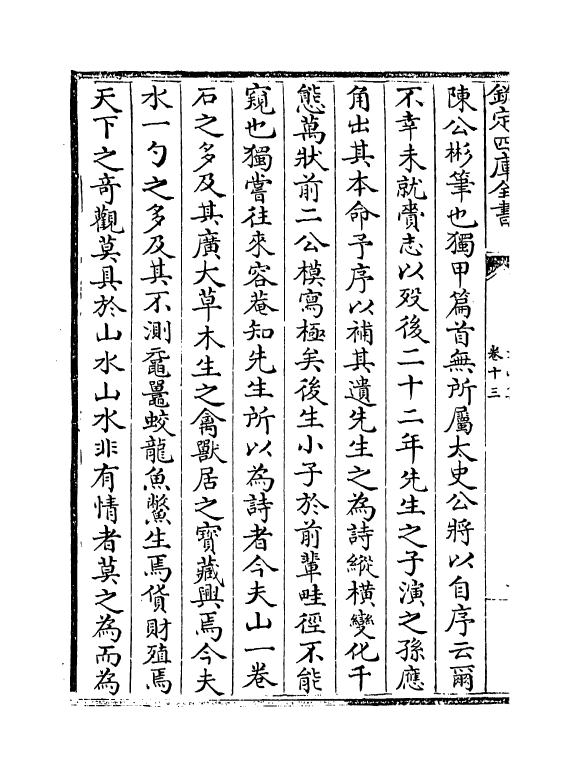 欽定四庫全書
卷十三
陳公彬筆也獨甲篇首無所屬太史公將以自序云爾
不幸未就賫志以歿後二十二年先生之子演之孫應
角出其本命予序以補其遺先生之為詩縱橫變化千
態萬狀前二公模寫極矣後生小子於前輩畦徑不能
窺也獨嘗往來容菴知先生所以為詩者今夫山一卷
石之多及其廣大草木生之禽獸居之寶藏興焉今夫
水一勺之多及其不測黿鼉蛟龍魚鱉生焉貨財殖焉
天下之奇觀莫具於山水山水非有情者莫之為而為